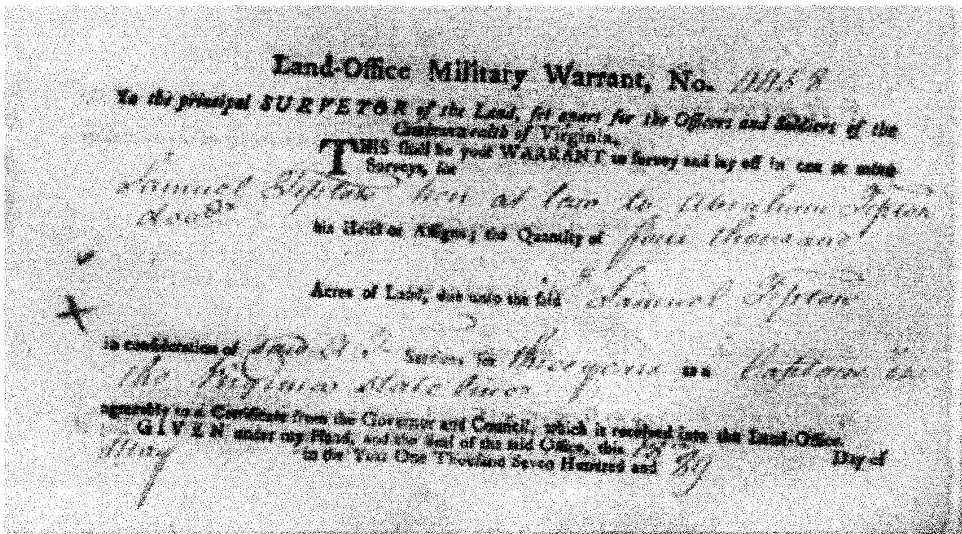 Land-Office Military Warrant, No. 4458
To the principal SURVEYOR of the Land, set apart for the Officers and Soldiers of the
Commonwealth of Virginia.
THIS shall be your WARRANT to Survey and lay off in one or more
Surveys, for
Samuel Tipton heir at law to Abraham Tipton
his Heirs or Assigns, the Quantity of four thousand
Acres of Land, due unto the said Samuel Tipton
in consideration of said A T Services for three years as a Captain in
the Virginia state line
agreeably to a Certificate from the Governor and Council, which is received into the Land-Office.
GIVEN under my Hand, and the Seal of the said Office, this Day of
May in the Year One Thousand Seven Hundred and 89